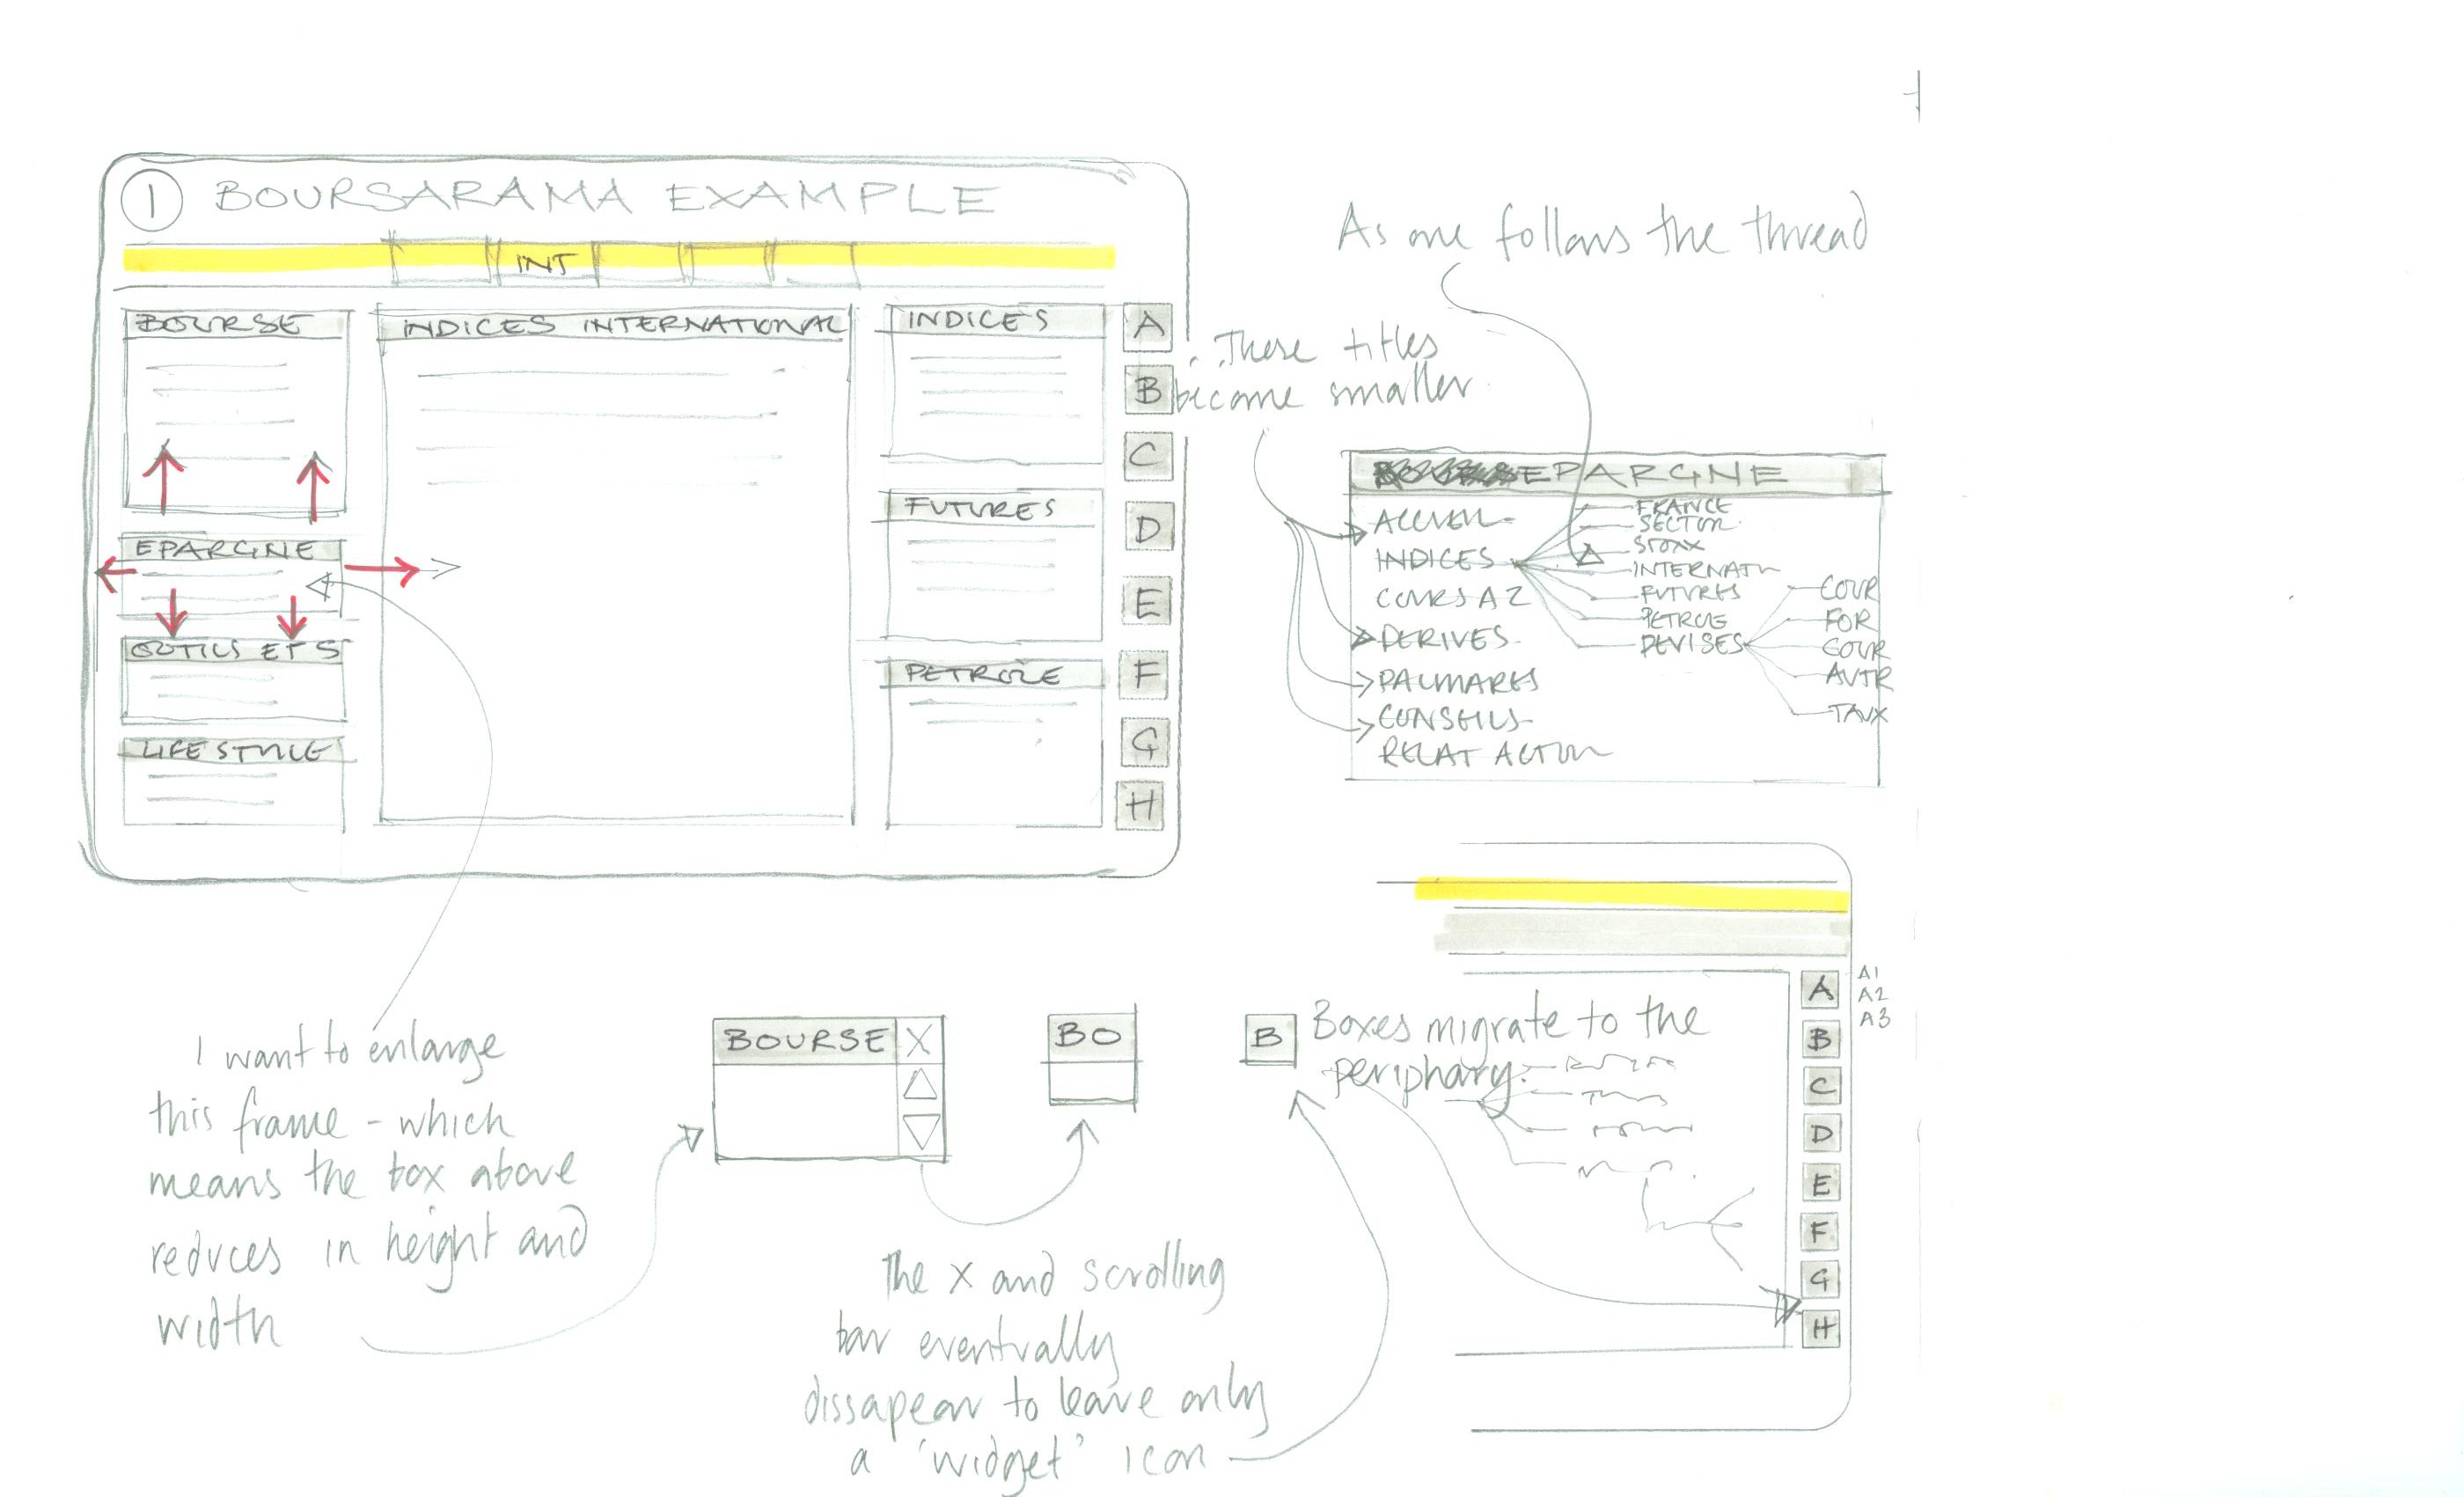 1 BOURSARAMA EXAMPLE
INT
BOURSE
EPARGNE
OUTILS ET S
LIFE STYLE
INDICES INTERNATIONAL
INDICES
FUTURES
PETROLE
A
B
C
D
E
F
G
H
As one follows the thread
These titles
become smaller
EPARGNE
ACCUEIL
INDICES
COURS A Z
DERIVES
PALMARES
CONSEILS
RELAT ACTON
FRANCE
SECTOR
STOXX
INTERNATN
FUTURES
PETROLE
DEVISES
COUR
FOR
COUR
AUTR
TAUX
I want to enlarge
this frame - which
means the box above
reduces in height and
width
BOURSE X
BO
B
The X and scrolling
bar eventually
dissapear to leave only
a 'widget' icon
Boxes migrate to the
periphary.
A
B
C
D
E
F
G
H
A1
A2
A3